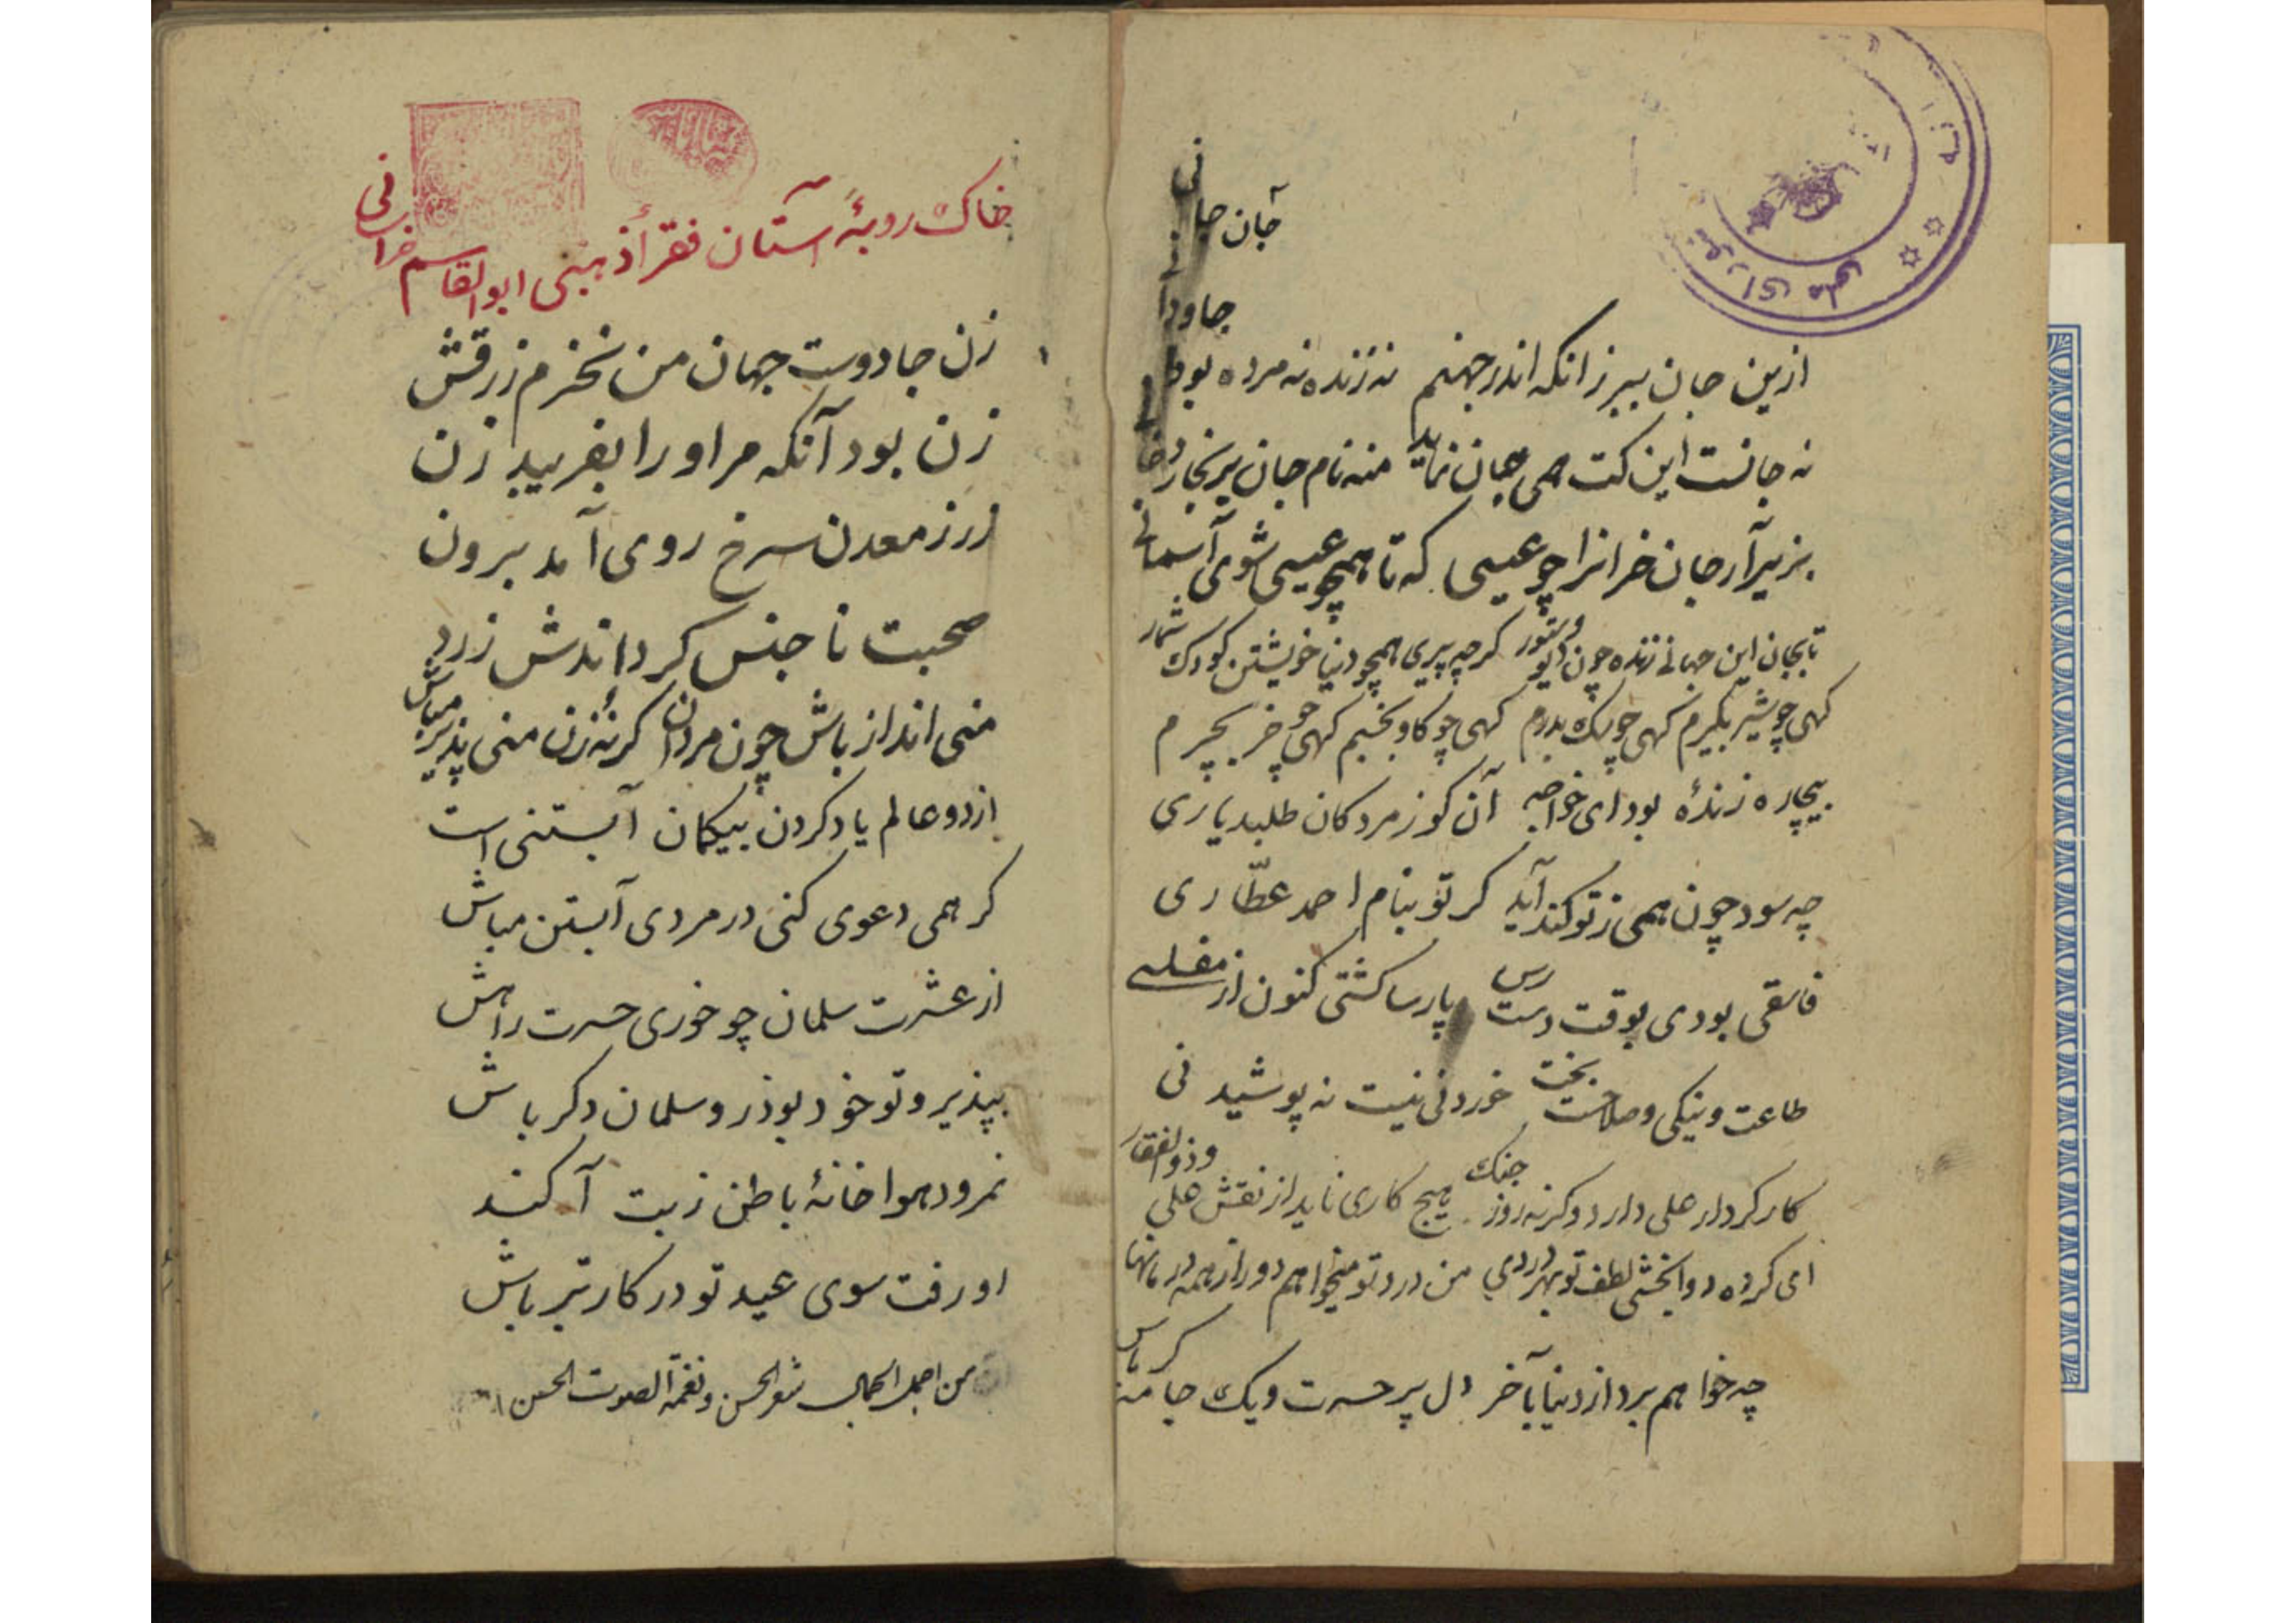 جان جا
نی
جاودا
ازین جان ببر زانکه اندر جهنم نه زنده نه مرده بود
نه جانست این کت همی جان نماید منه نام جان بر بخار دخا
نی
بزیر آر جان خرانرا چو عیسی که تا همچو عیسی شوی آسمانی
تا بجان این جهانی زنده چون دیو و ستور کرچه پیری همچو دنیا خویشتن کودک شمار
کهی چو شیر بکیرم کهی چو یک بدرم کهی چو کاو بخسبم کهی چو خر بچرم
بیچاره زندۀ بود ای خواجه آن کو ز مردکان طلبد یاری
چه سود چون همی ز تو کند آید کر تو بنام احمد عطّاری
فاسقی بودی بوقت دست رس پارسا کشتی کنون از مفلسی
طاعت و نیکی و صلاحست بخت خوردنی نیست نه پوشیدنی
کار کردار علی دارد وکرنه روز جنک هیچ کاری ناید از نقش علی و ذوالفقار
ای کرده دوا بخشی لطف تو بهر دردی من درد تو میخواهم دور از همه درمانها
چه خواهم برد از دنیا بآخر دل پر حسرت و یک جامه کرباس
خاک روبۀ آستان فقرأ ذهبی ابوالقاسم
زن جادوست جهان من نخرم زرقش
زن بود آنکه مر او را بفریبد زن
زر ز معدن سرخ روی آمد برون
صحبت نا جنس کرداندش زرد
منی انداز باش چون مردان کرنۀ زن منی پذیر مباش
از دو عالم یاد کردن بیکمان آبستنی است
کر همی دعوی کنی در مردی آبستن مباش
از عشرت سلمان چو خوری حسرت راهش
بپذیر و تو خود بوذر و سلمان دکر باش
نمرود هوا خانۀ باطن ز بت آکند
او رفت سوی عید تو در کار تبر باش
من اجمل الجمال شعر الحسن و نغمة الصوت الحسن